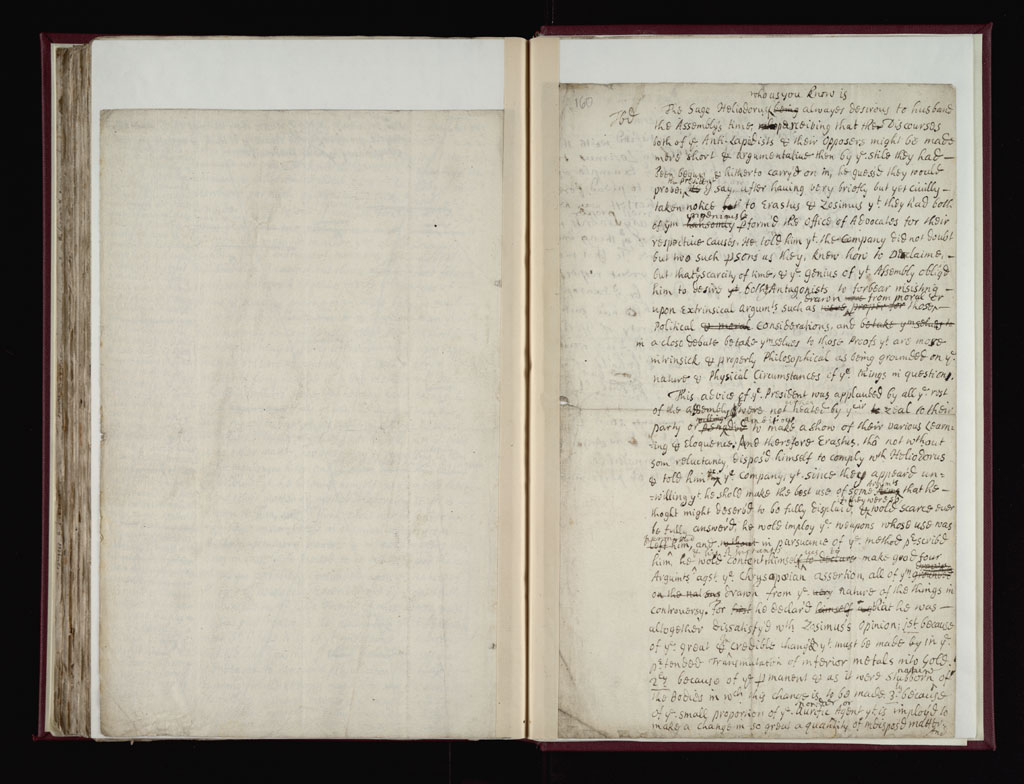 160
who as you know is
The Sage Heliodorus being alwayes desirous to husband
the Assembly's time, perceiving that the Discourses
both of ye Anti-Lapidists & their Opposers might be made
more short & argumentative then by ye stile they had
been begun & hitherto carry'd on in, he guess'd they would
the President
probe, I say, after having very briefly but yet civilly
taken notice to Erastus & Zosimus yt they had both
ingeniously
of ym handsomly pform'd the Office of Advocates for their
respective Causes. He told him yt the Company did not doubt
but two such psons as they, knew how to Declaime,
but that ye scarcity of time, & ye genius of yt Assembly oblig'd
him to desire yt both Antagonists to forbear insisting
drawn from moral or
upon Extrinsical Argumts such as were proper for those
Political & moral Considerations, and betake ymselves to
in a close debate betake ymselves to those Proofs yt are more
intrinsick & properly Philosophical as being grounded on ye
nature & Physical Circumstances of ye things in question.
This advice of ye President was applauded by all ye rest
of the assembly were not heated by yeir zeal to their
willing ambitious
party or desire to make a show of their various Learn-
ing & Eloquence. And therefore Erastus, tho not without
som reluctancy dispos'd himself to comply wth Heliodorus
& told him & ye Company, yt since they appeard un-
Argumts
willing yt he shold make the best use of some that he
if they were so
thoght might deserv'd to be fully displaid, & wold scarce ever
be fully answerd, he wold imploy ye weapons whose use was
left him, and without in pursuance of ye method pscrib'd
him, he wold content himself to declare make good four
Argumts agst ye Chrysopoeian assertion, all of ym grounded
on the natures drawn from ye very nature of the things in
controversy. For first he declar'd himself that he was
altogether dissatisfy'd wth Zosimus's opinion; 1st because
of ye great & credible change yt must be made by in ye
ptended Transmutation of inferior metals into Gold.
nature
2ly because of ye pmanent & as it were stubborn of
the Bodies in wch this change is to be made. 3ly because
of ye small proportion of ye Aurific Agent yt is imploy'd to
make a change in so great a quantity of indispos'd matter.